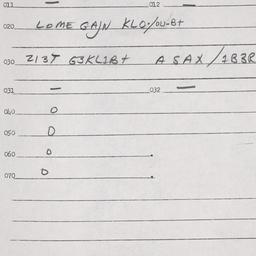 011 — 012 —
020 LOME GAJN KLO./OU-Bt
030 Z13T G3KL1Bt A SAX/1B3R
031 — 032 —
040 O
050 O
060 O .
070 O .